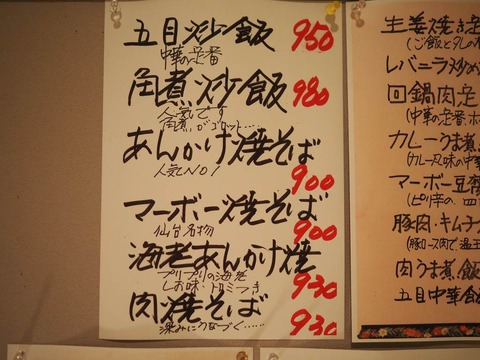 五目炒飯 950
中華の定番
角煮炒飯 980
人気です
角煮がゴロッと……
あんかけ焼そば
人気NO1
900
マーボー焼そば
仙台名物
900
海老あんかけ焼
プリプリの海老
しお味・トロミつき
930
肉焼そば
深みにうなづく…… 930
生姜焼き定
(ご飯と夕しのね
レバニラ炒め
回鍋肉定
(中華の定番 ホ
カレーうま煮
(カレー風味の中華
マーボー豆腐
(ピリ辛の 四
豚肉・キムチ
(豚ロース肉で
肉うま煮飯
五目中華飯